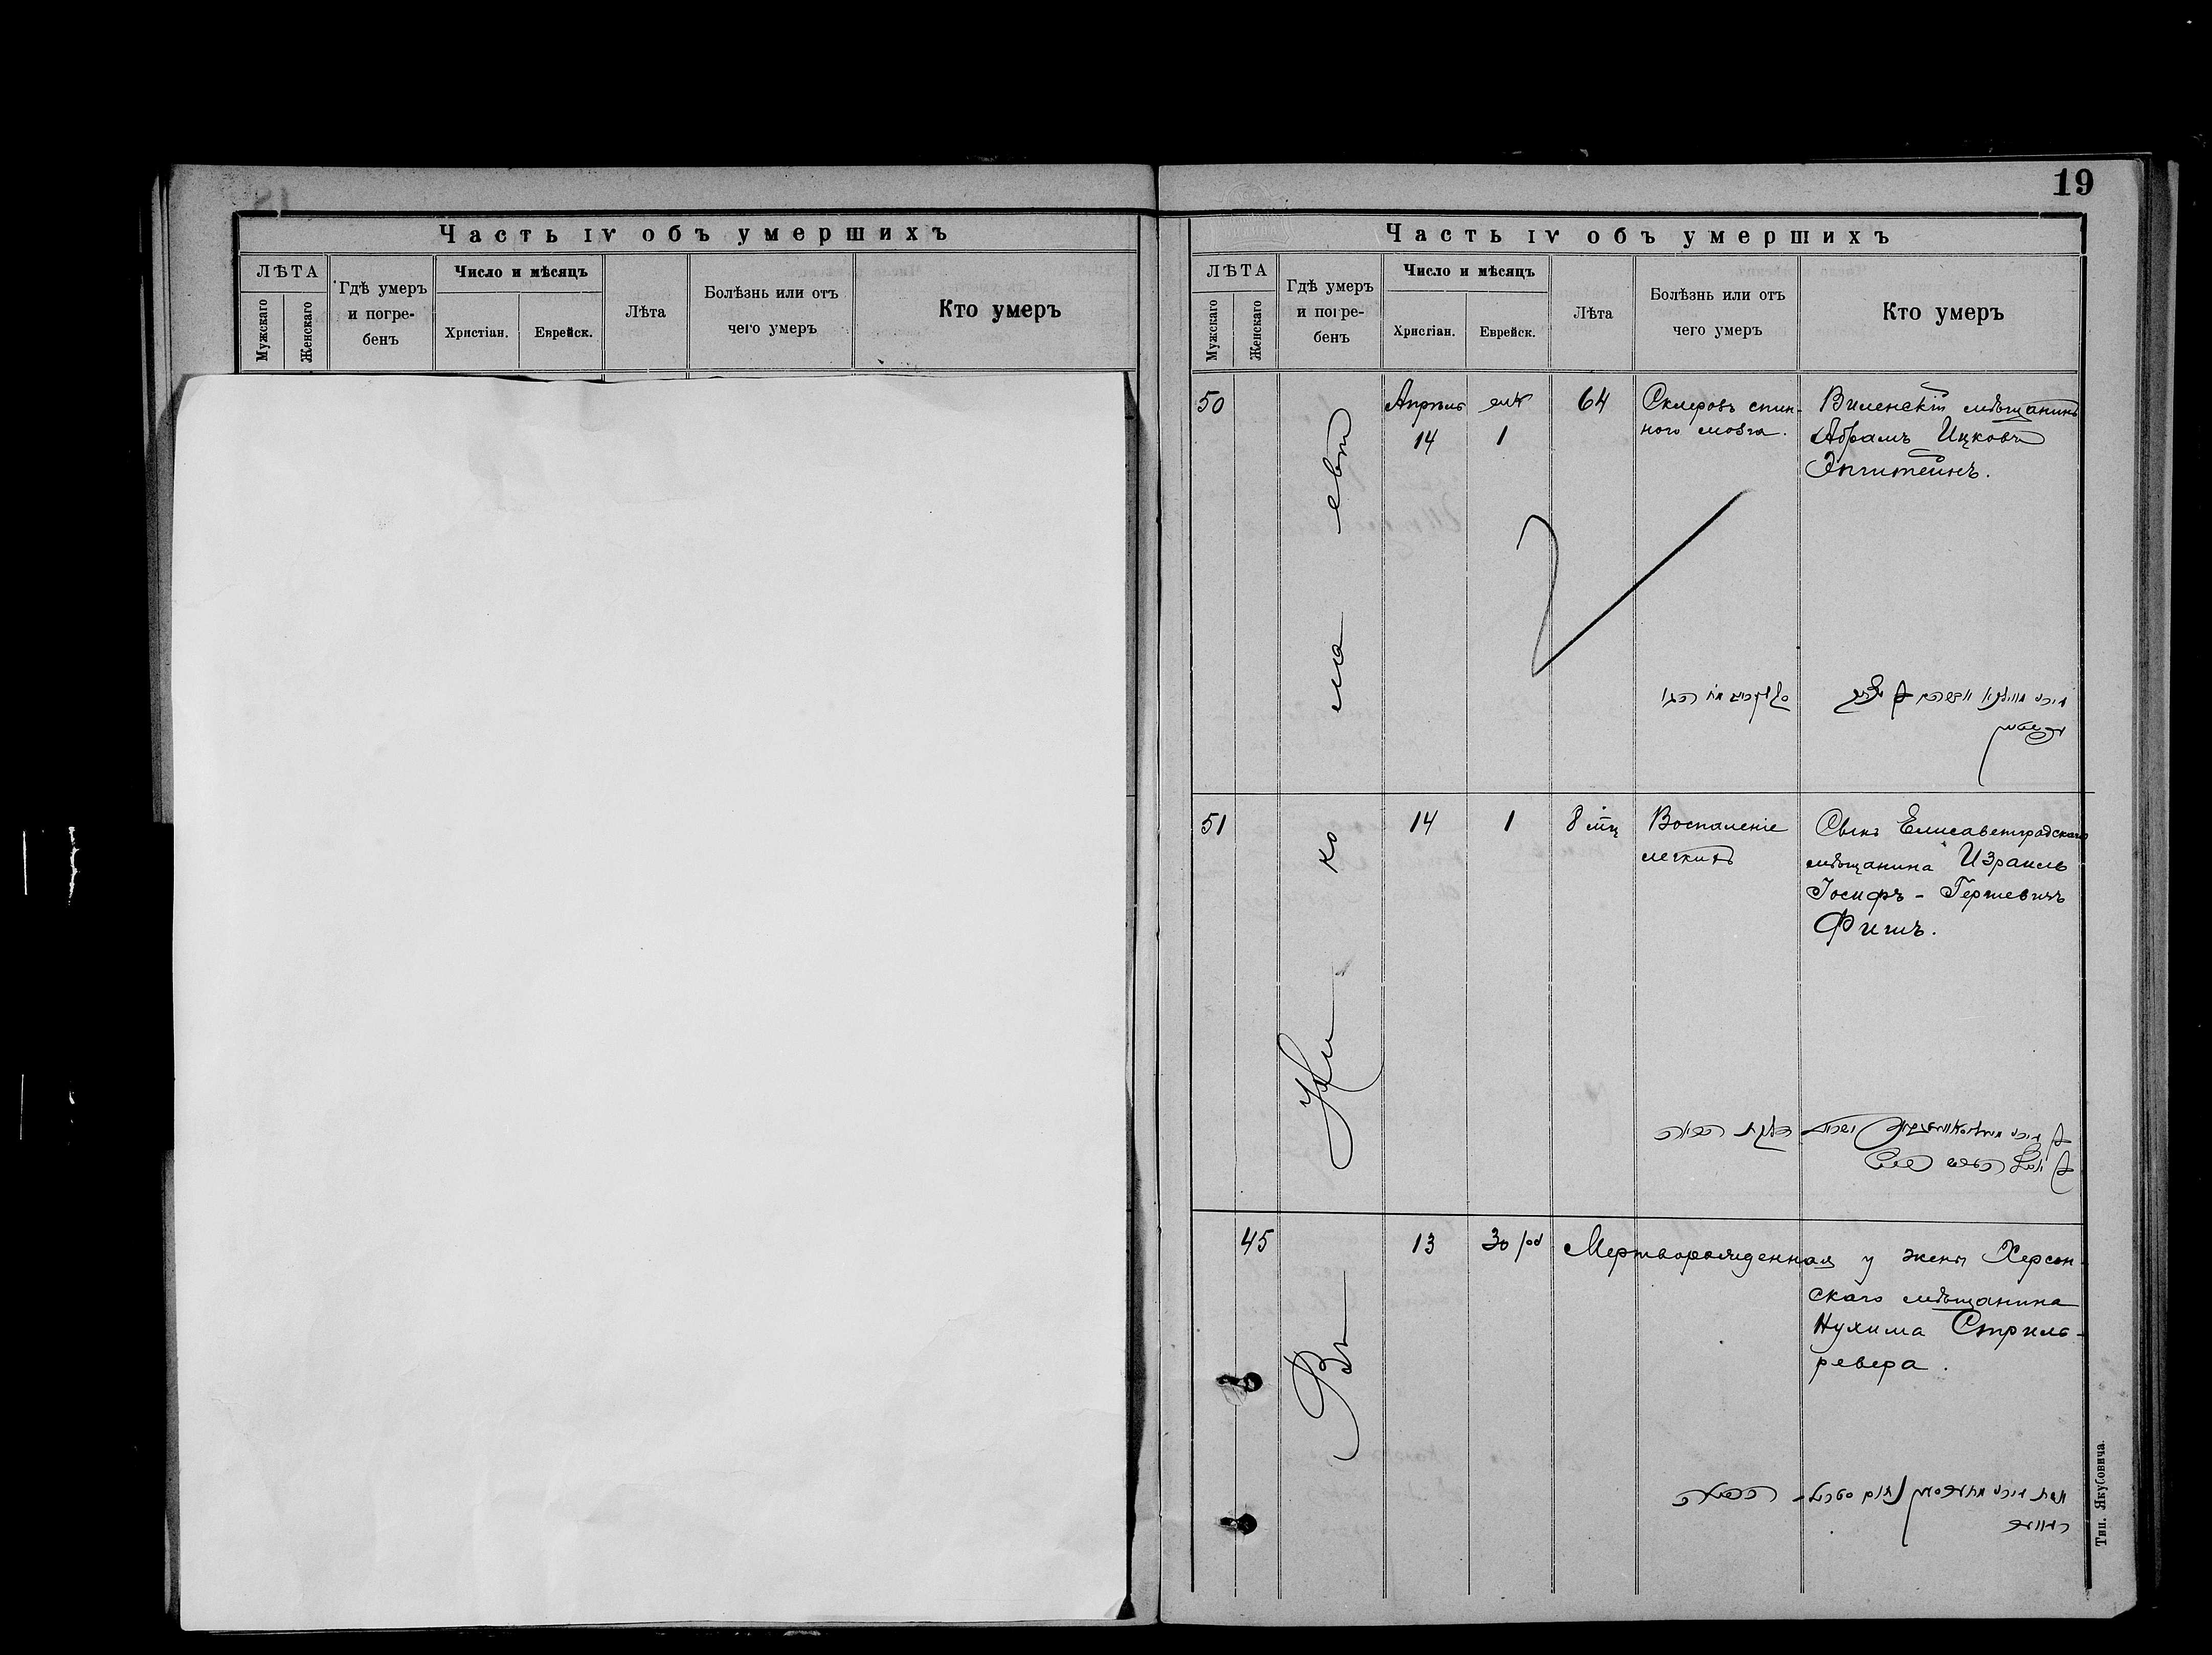 19
Часть IV объ умершихъ
ЛѢТА
Мужскаго
Женскаго
Гдѣ умеръ
и погре-
бенъ
Число и мѣсяцъ
Христіан.
Еврейск.
Лѣта
Болѣзнь или отъ
чего умеръ
Кто умеръ
Часть IV объ умершихъ
ЛѢТА
Мужскаго
Женскаго
Гдѣ умеръ
и погре-
бенъ
Число и мѣсяцъ
Христіан.
Еврейск.
Лѣта
Болѣзнь или отъ
чего умеръ
Кто умеръ
50
Апрѣль
14
1
64
Склерозъ спин-
ного мозга.
Виленскій мѣщанинъ
Абрамъ Ицковъ
Эпштейнъ.
51
14
1
8 мц
Воспаленіе
легкихъ
Сынъ Елисаветградскаго
мѣщанина Израиль
Іосифъ - Гершевичъ
Фишъ.
45
13
30
Мертворожденная у жены Херсон-
скаго мѣщанина
Нухима Стриль-
ревера.
Въ
Ни
ко
ла
евѣ
Тип. Якубовича.